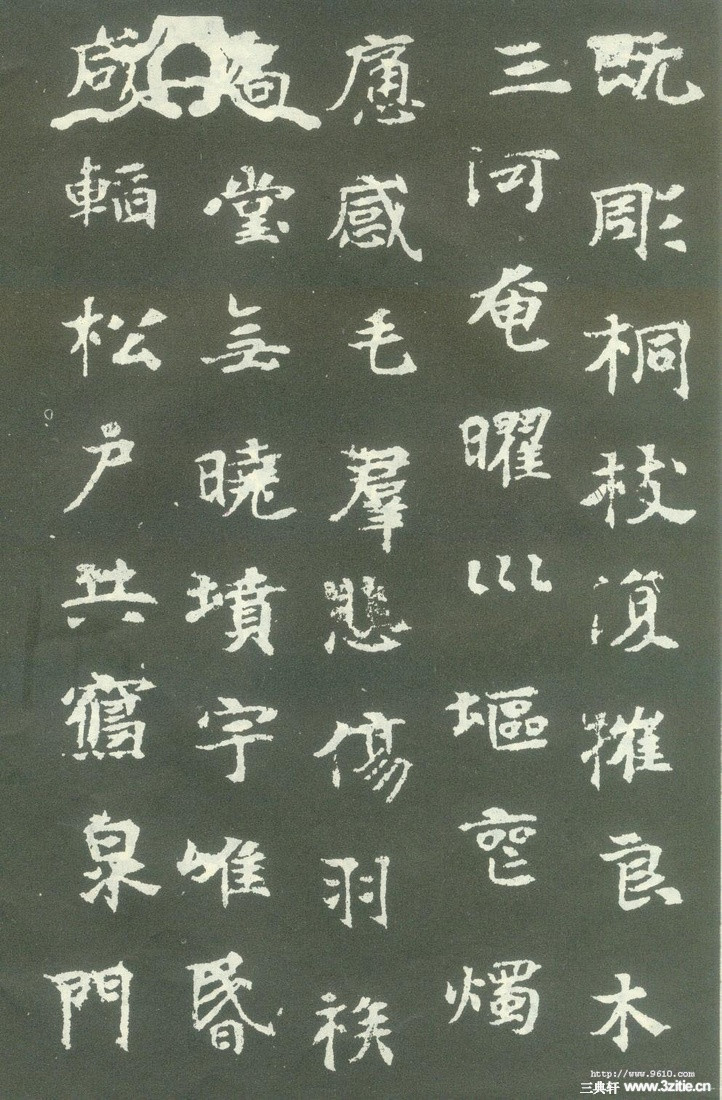 既彫桐枝復摧良木
三河奄曜巛塸喪燭
痛感毛羣悲傷羽族
扃堂无曉墳宇唯昬
咸韜松户共寢泉門
http://www.9610.com
三典轩 www.3zitie.cn